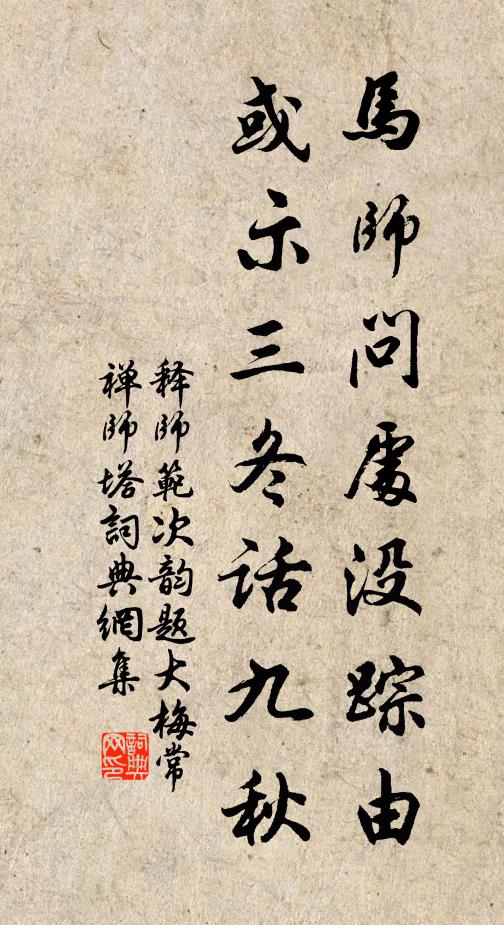 馬師問處没踪由
或示三冬话九秋
释師範次韵题大梅常
禅師塔詞典網集
詞典网印